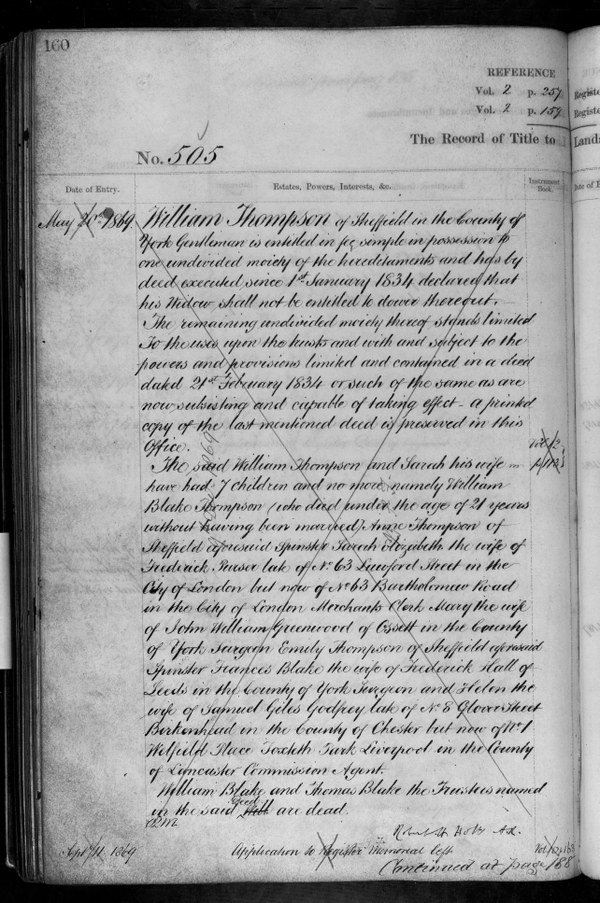 160
REFERENCE
Vol. 2 p. 257
Vol. 2 p. 159
The Record of Title to
Land
No. 505
Date of Entry.
Estates, Powers, Interests, &c.
Instrument Book.
May 20th 1869
William Thompson of Sheffield in the County of
York Gentleman is entitled in fee simple in possession to
one undivided moiety of the hereditaments and has by
deed executed since 1st January 1834 declared that
his Widow shall not be entitled to dower thereout.
The remaining undivided moiety thereof stands limited
To the uses upon the trusts and with and subject to the
powers and provisions limited and contained in a deed
dated 21st February 1834 or such of the same as are
now subsisting and capable of taking effect - a printed
copy of the last mentioned deed is preserved in this
Office.
The said William Thompson and Sarah his wife
have had 7 children and no more namely William
Blake Thompson (who died under the age of 21 years
without having been married) Anne Thompson of
Sheffield aforesaid Spinster Sarah Elizabeth the wife of
Frederick Purser late of No 63 Street in the
City of London but now of No 63 Bartholomew Road
in the City of London Merchants Clerk Mary the wife
of John William Greenwood of Ossett in the County
of York Surgeon Emily Thompson of Sheffield aforesaid
Spinster Frances Blake the wife of Frederick Hall of
Leeds in the County of York Surgeon and Helen the
wife of Samuel Giles Godfrey late of No 8 Glover Street
Birkenhead in the County of Chester but now of No 1
Welfield Place Toxteth Park Liverpool in the County
of Lancaster Commission Agent.
William Blake and Thomas Blake the Trustees named
in the said deed are dead.
Robert H Holt
Sept 11 1869
Application to Register Memorial left
Continued at page 188